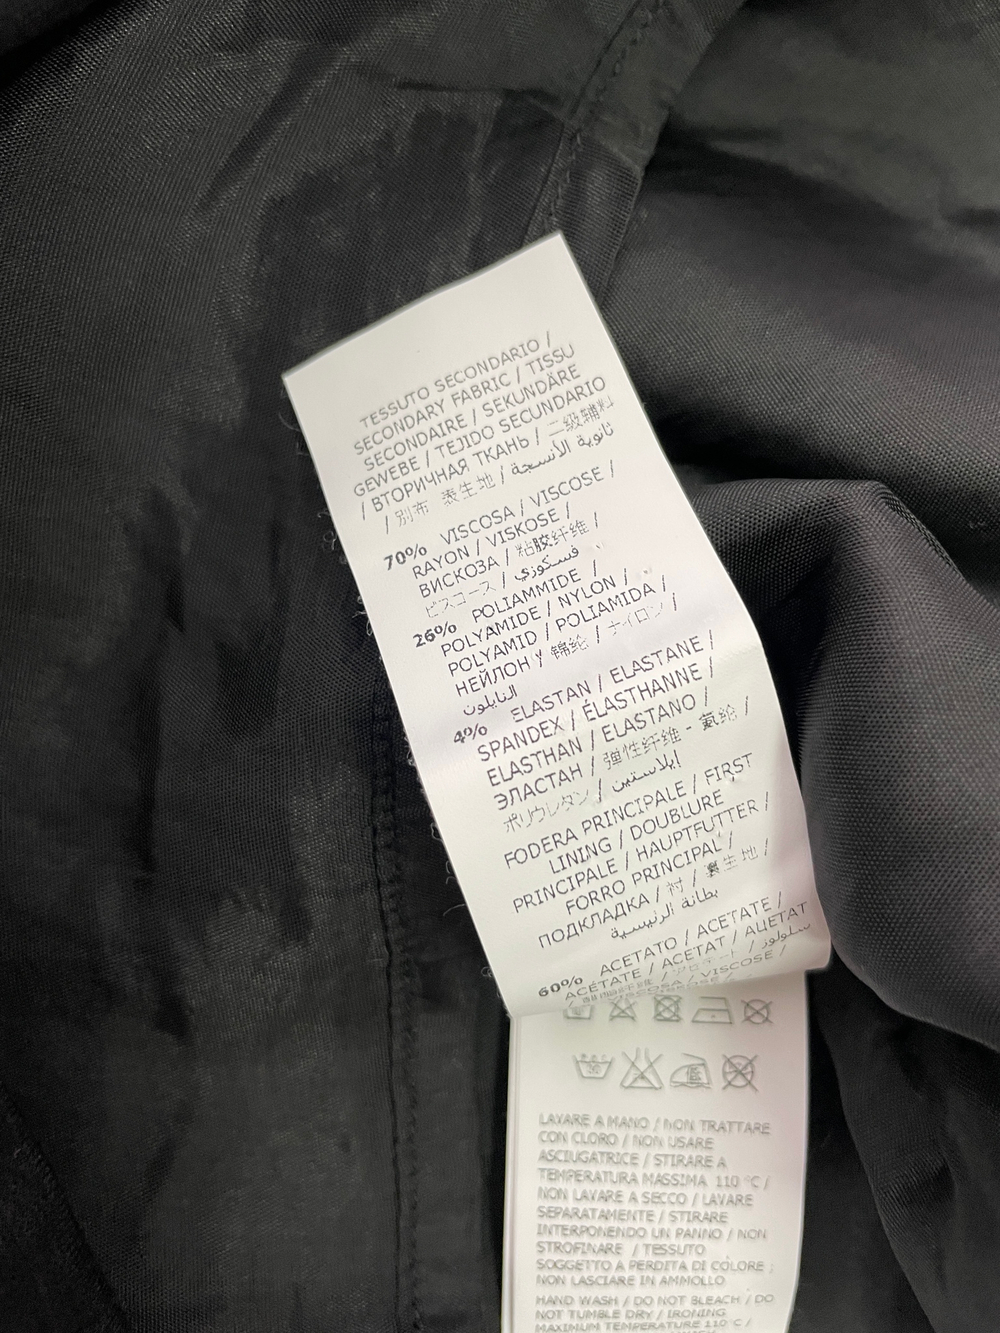 TESSUTO SECONDARIO /
SECONDARY FABRIC / TISSU
SECONDAIRE / SEKUNDÄRE
GEWEBE / TEJIDO SECUNDARIO
/ ВТОРИЧНАЯ ТКАНЬ / 二级辅料
/ 別布 表生地 / ثانوية الأنسجة /
70% VISCOSA / VISCOSE /
RAYON / VISKOSE /
ВИСКОЗА / 粘胶纤维 /
ビスコース / فسكوزي
26% POLIAMMIDE /
POLYAMIDE / NYLON /
POLYAMID / POLIAMIDA /
НЕЙЛОН / 锦纶 / ナイロン /
النايلون
4% ELASTAN / ELASTANE /
SPANDEX / ÉLASTHANNE /
ELASTHAN / ELASTANO /
ЭЛАСТАН / 弹性纤维 - 氨纶 /
ポリウレタン / إيلاستين
FODERA PRINCIPALE / FIRST
LINING / DOUBLURE
PRINCIPALE / HAUPTFUTTER /
FORRO PRINCIPAL /
ПОДКЛАДКА / 衬 / 裏生地 /
بطانة الرئيسية
60% ACETATO / ACETATE /
ACÉTATE / ACETAT / АЦЕТАТ
VISCOSE /
LAVARE A MANO / NON TRATTARE
CON CLORO / NON USARE
ASCIUGATRICE / STIRARE A
TEMPERATURA MASSIMA 110 °C /
NON LAVARE A SECCO / LAVARE
SEPARATAMENTE / STIRARE
INTERPONENDO UN PANNO / NON
STROFINARE / TESSUTO
SOGGETTO A PERDITA DI COLORE ;
NON LASCIARE IN AMMOLLO
HAND WASH / DO NOT BLEACH / DO
NOT TUMBLE DRY / IRONING
MAXIMUM TEMPERATURE 110°C /